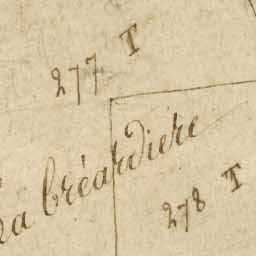 277 T
La bréardiere
278 T